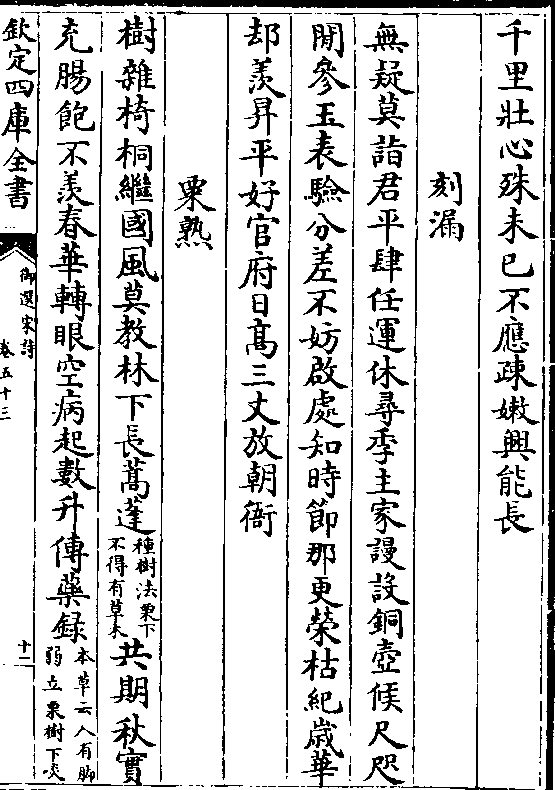 千里壯心殊未已不應疎嬾興能長
刻漏
無疑莫詣君平肆任運休尋季主家謾設銅壺候尺咫
閒參玉表驗分差不妨啟處知時節那更榮枯紀歲華
却羨昇平好官府日高三丈放朝衙
栗熟
樹雜椅桐繼國風莫教林下長蒿蓬種樹法栗下不得有草木共期秋實
充腸飽不羨春華轉眼空病起數升傳藥録本草云人有脚弱立栗樹下啖
欽定四庫全書
御選宋詩
卷五十三
十二